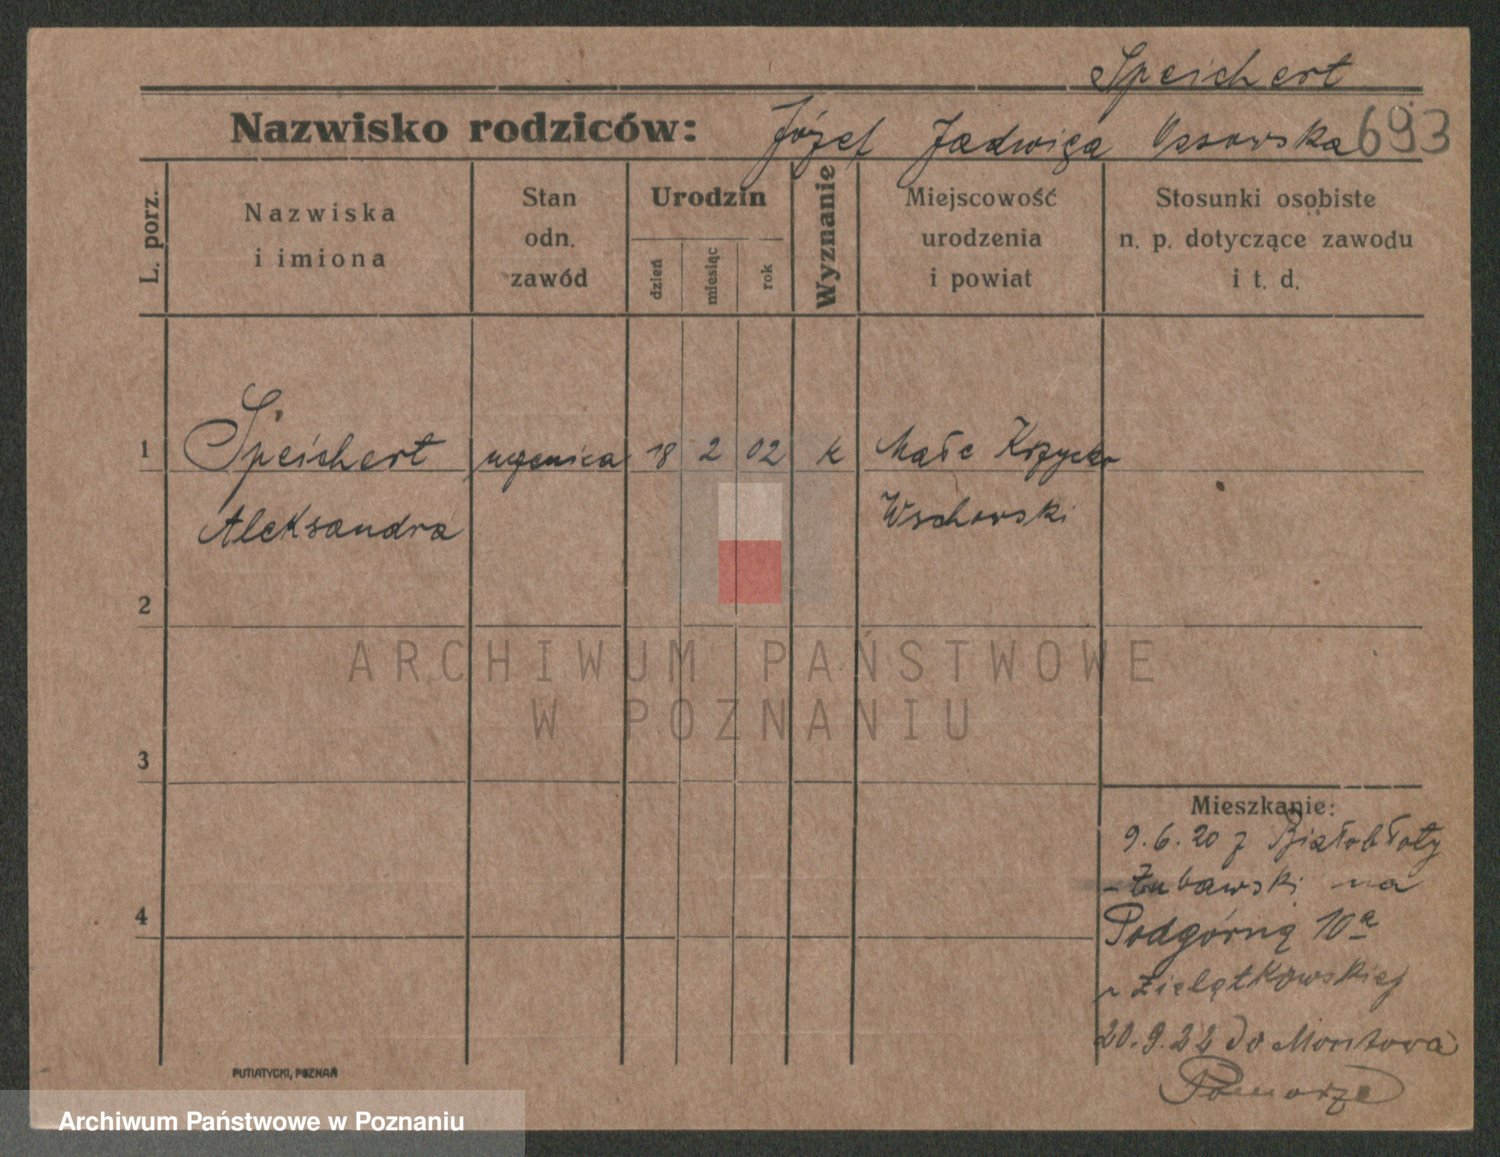 Speichert
Nazwisko rodziców: Józef Jadwiga Ossowska 693
L. porz.
Nazwiska
i imiona
Stan
odn.
zawód
Urodzin
dzień
miesiąc
rok
Wyznanie
Miejscowość
urodzenia
i powiat
Stosunki osobiste
n. p. dotyczące zawodu
i t. d.
1 Speichert uczenica 18 2 02 k Małe Krzycko
Aleksandra Wschowski
2
3
4
Mieszkanie:
9.6.20 z Białobłoty
na
Podgórną 10a
Zielątkowskiej
20.9.22 do Montowa
Pomorze
PUTIATYCKI, POZNAŃ
ARCHIWUM PAŃSTWOWE
W POZNANIU
Archiwum Państwowe w Poznaniu